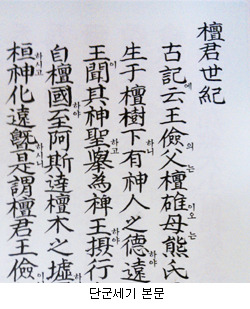 檀君世紀
古記에云王儉의父는檀雄이오母는熊氏
生于檀樹下하니有神人之德하야遠
王이聞其神聖하고擧為裨王하야攝行
自檀國至阿斯達檀木之墟하야
桓하시고神化遠旣하시니是謂檀君王儉이
단군세기 본문